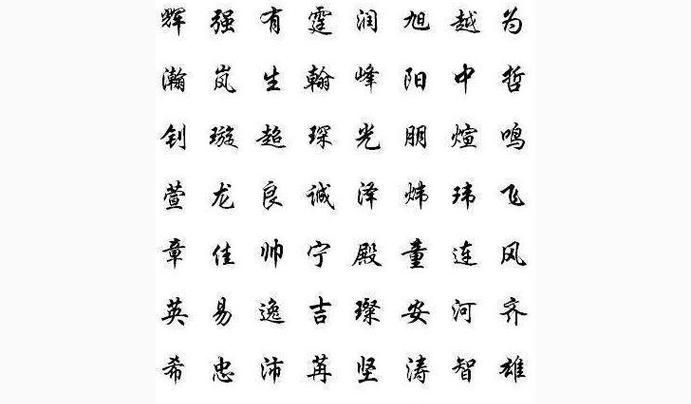 辉 强 有 霆 润 旭 越 为
瀚 岚 生 翰 峰 阳 中 哲
钊 璇 超 琛 光 朋 煊 鸣
萱 龙 良 诚 泽 炜 玮 飞
章 佳 帅 宁 殿 童 连 风
英 易 逸 吉 璨 安 河 齐
希 忠 沛 苒 坚 涛 智 雄